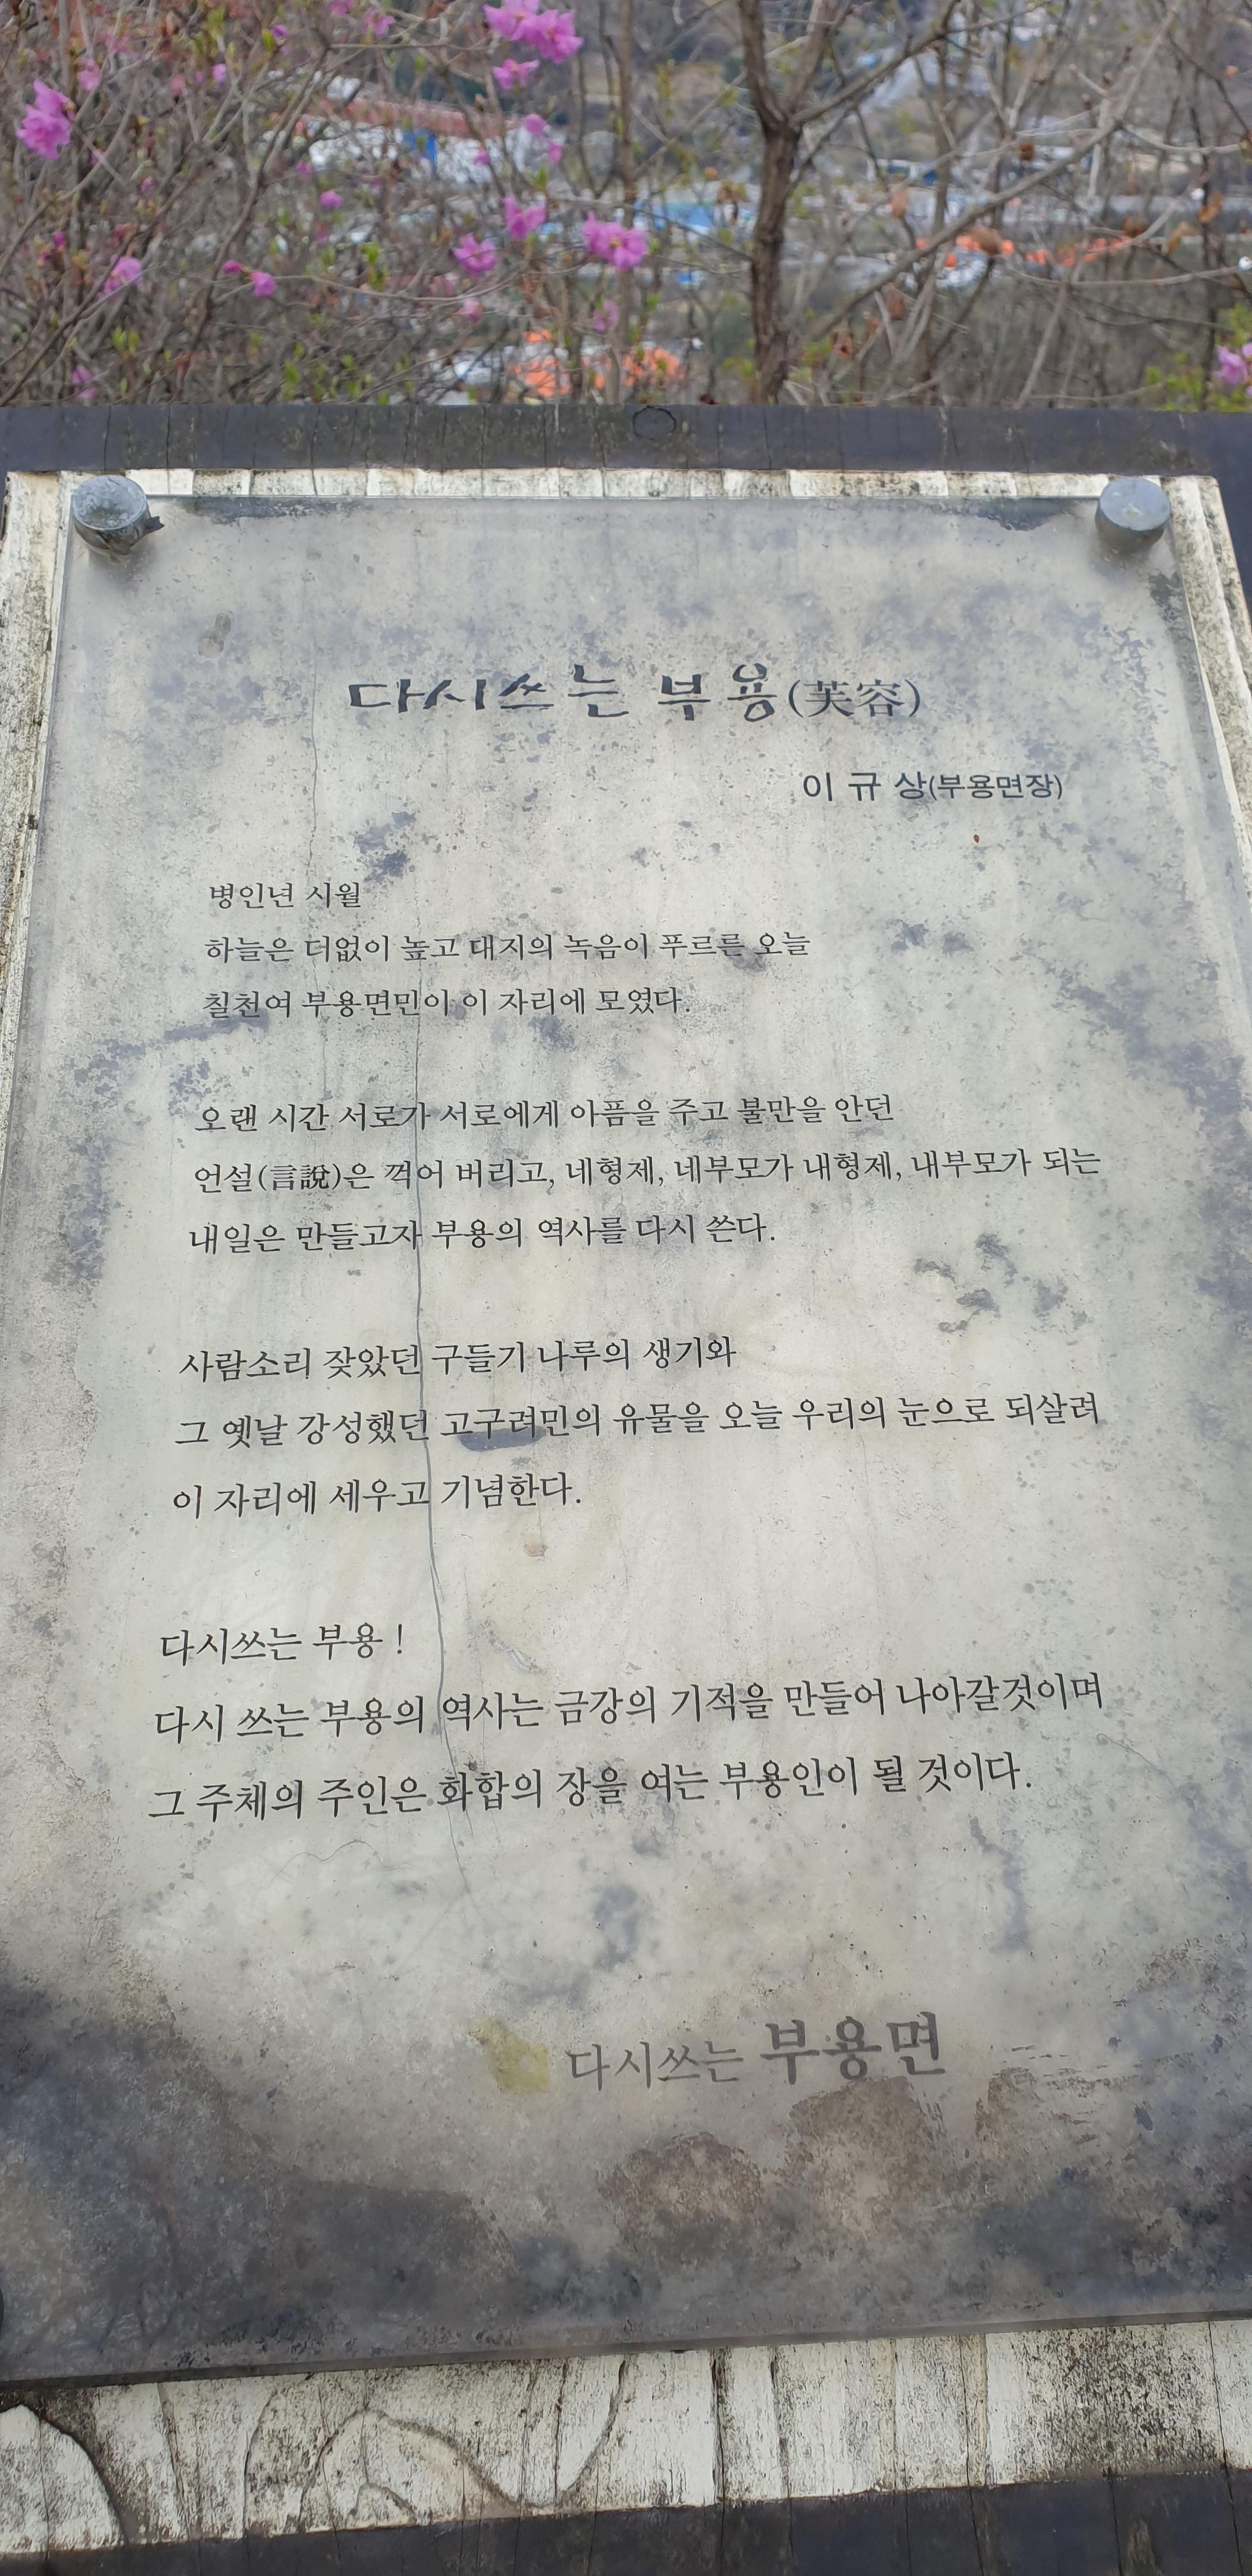 다시쓰는 부용(芙容)
이 규 상(부용면장)
병인년 시월
하늘은 더없이 높고 대지의 녹음이 푸르른 오늘
칠천여 부용면민이 이 자리에 모였다.
오랜 시간 서로가 서로에게 아픔을 주고 불만을 안던
언설(言說)은 꺽어 버리고, 네형제, 네부모가 내형제, 내부모가 되는
내일은 만들고자 부용의 역사를 다시 쓴다.
사람소리 잦았던 구들기 나루의 생기와
그 옛날 강성했던 고구려민의 유물을 오늘 우리의 눈으로 되살려
이 자리에 세우고 기념한다.
다시쓰는 부용 !
다시 쓰는 부용의 역사는 금강의 기적을 만들어 나아갈것이며
그 주체의 주인은 화합의 장을 여는 부용인이 될 것이다.
다시쓰는 부용면